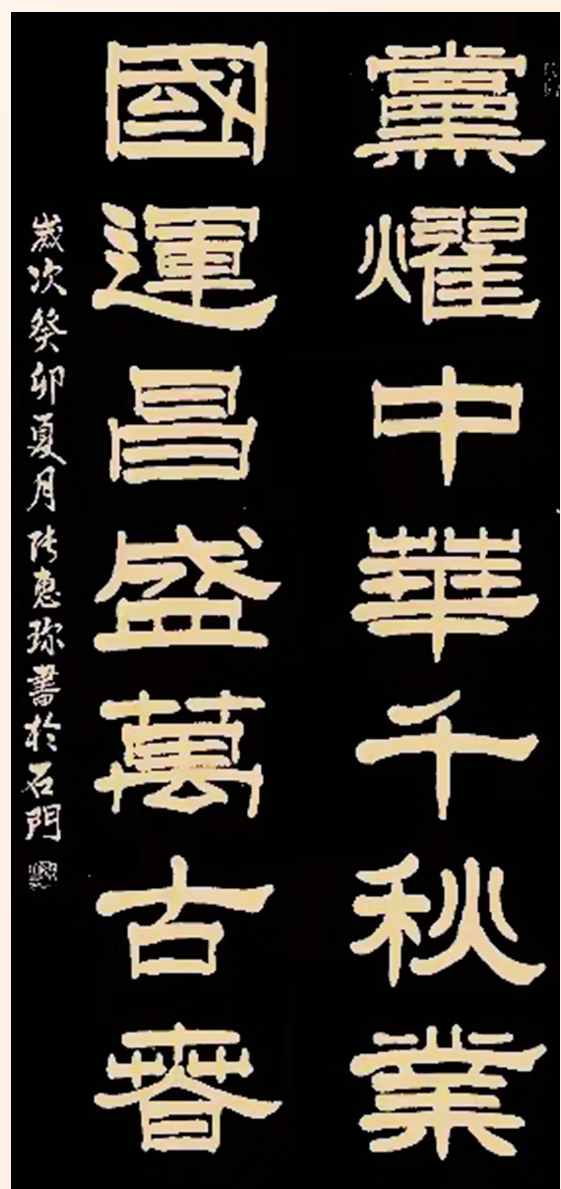 黨耀中華千秋業
國運昌盛萬古春
歲次癸卯夏月張惠珍書於石門